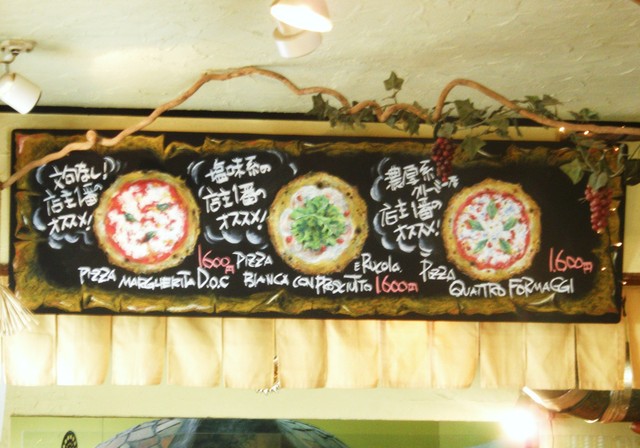 文句なし!
店主1番の
オススメ!
1600円
PIZZA
MARGHERITA D.O.C
塩味系の
店主1番の
オススメ!
PIZZA
BIANCA CON PROSCIUTTO
E RUCOLA.
1.600円
濃厚系
クリーミーで
店主1番の
オススメ!
PIZZA
QUATTRO FORMAGGI
1.600円